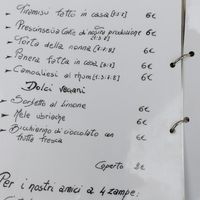 Tiramisù fatto in casa [1.3.7] 6€
Prescinseûa Cafe di nostra produzione 6€
[1.3.7.8]
Torta della nonna [1.3.7.8] 6€
Panera fatta in casa [3.7] 6€
Camogliesi al rhum [1.3.7.8] 6€
Dolci vegani
Sorbetto al limone 6€
Mele ubriache 6€
Bicchiere di cioccolato con 6€
frutta fresca
Coperto 2€
Per i nostri amici a 4 zampe: